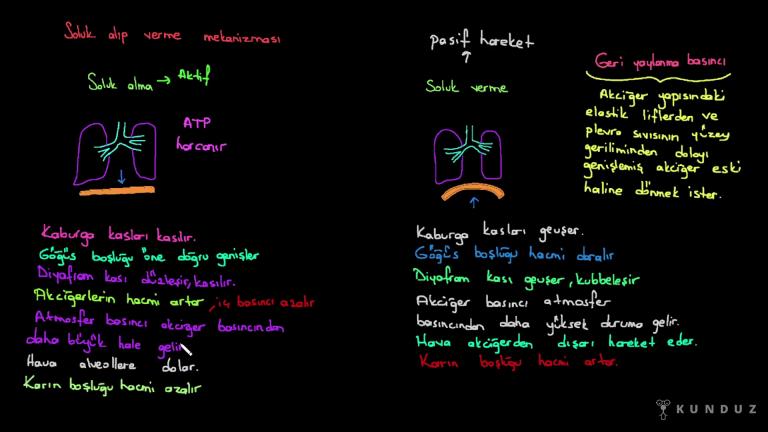 Soluk alıp verme mekanizması
Soluk alma → Aktif
ATP
harcanır
Kaburga kasları kasılır.
Göğüs boşluğu öne doğru genişler
Diyafram kası düzleşir, kasılır.
Akciğerlerin hacmi artar, iç basıncı azalır
Atmosfer basıncı akciğer basıncından
daha büyük hale gelir
Hava alveollere dolar.
Karın boşluğu hacmi azalır
pasif hareket
↑
Soluk verme
Kaburga kasları gevşer.
Göğüs boşluğu hacmi daralır
Diyafram kası gevşer, kubbeleşir
Akciğer basıncı atmosfer
basıncından daha yüksek duruma gelir.
Hava akciğerden dışarı hareket eder.
Karın boşluğu hacmi artar.
Geri yaylanma basıncı
Akciğer yapısındaki
elastik liflerden ve
plevra sıvısının yüzey
geriliminden dolayı
genişlemiş akciğer eski
haline dönmek ister.
KUNDUZ